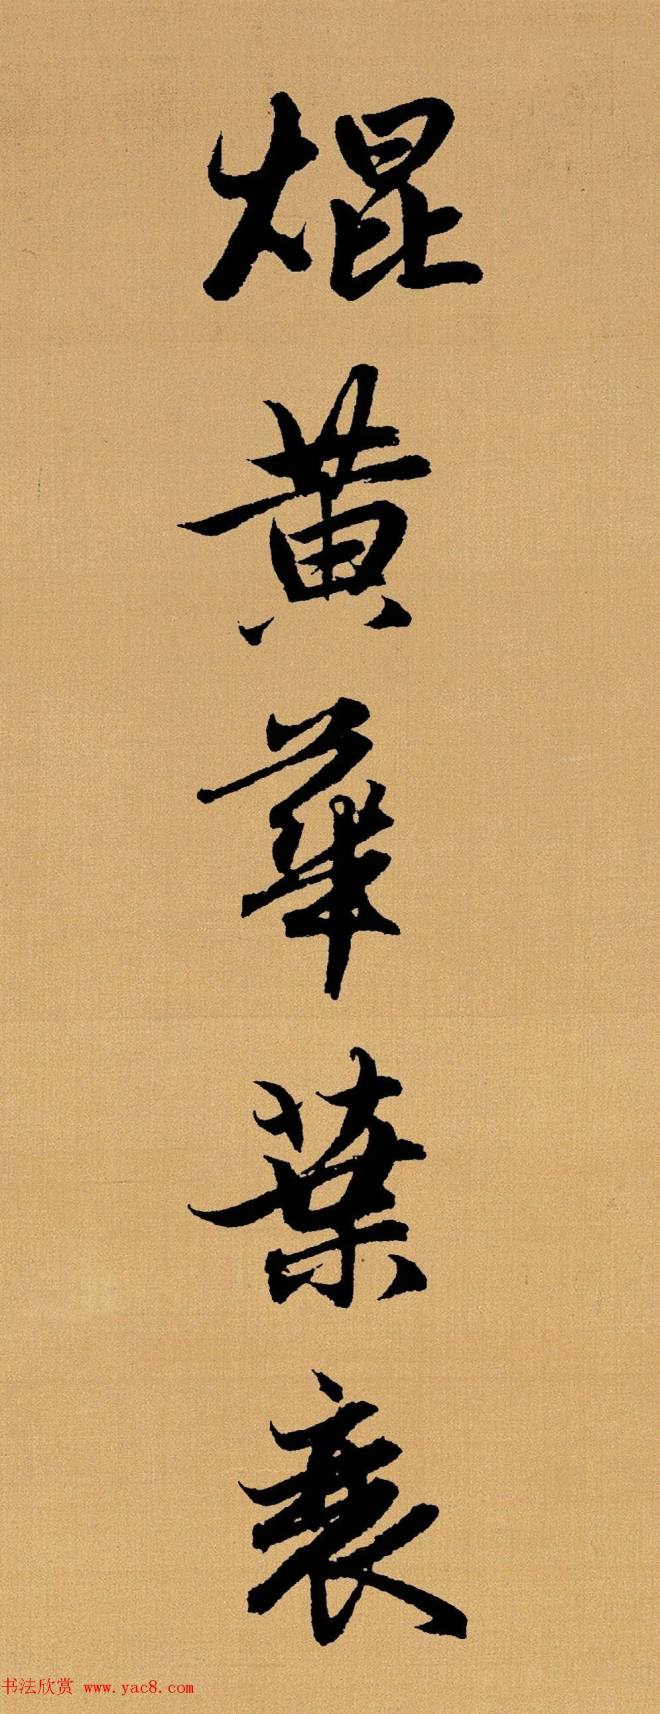 焜黄華葉衰
书法欣赏 www.yac8.com